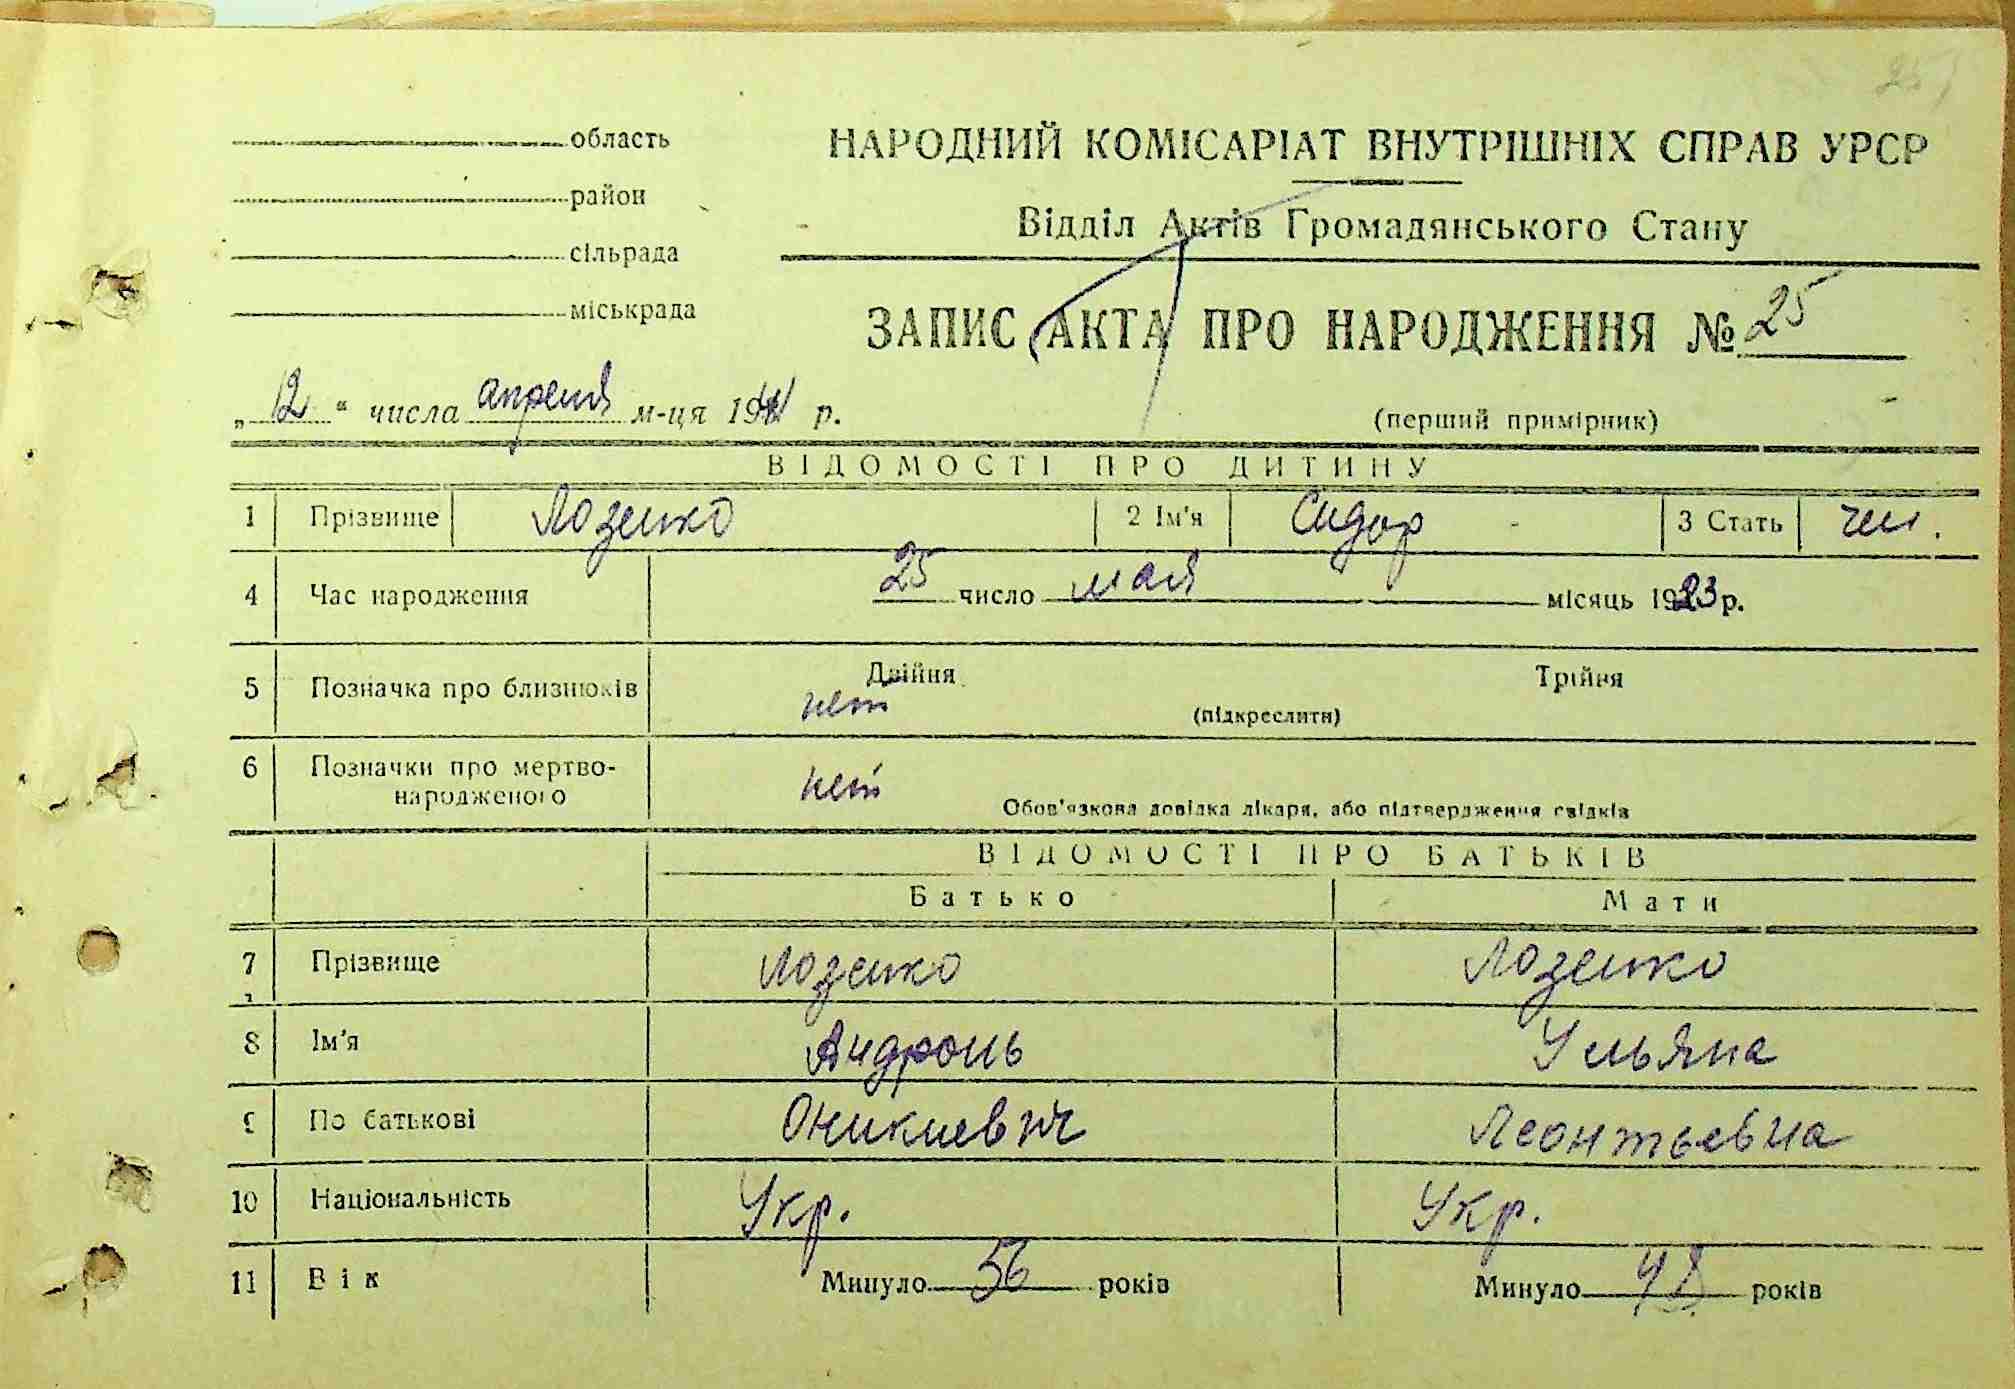 25
область
НАРОДНИЙ КОМІСАРІАТ ВНУТРІШНІХ СПРАВ УРСР
район
Відділ Актів Громадянського Стану
сільрада
міськрада
ЗАПИС АКТА ПРО НАРОДЖЕННЯ № 25
„ 12 “ числа апреля м-ця 1941 р.
(перший примірник)
ВІДОМОСТІ ПРО ДИТИНУ
1 Прізвище Лозенко 2 Ім'я Сидор 3 Стать чол.
4 Час народження 25 число мая місяць 1923 р.
5 Позначка про близнюків Двійня Трійня
нет (підкреслити)
6 Позначки про мертво-
народженого нет
Обов'язкова довідка лікаря, або підтвердження свідків
ВІДОМОСТІ ПРО БАТЬКІВ
Батько Мати
7 Прізвище Лозенко Лозенко
8 Ім'я Андронь Ульяна
9 По батькові Оникиевич Леонтьевна
10 Національність Укр. Укр.
11 Вік Минуло 56 років Минуло 48 років